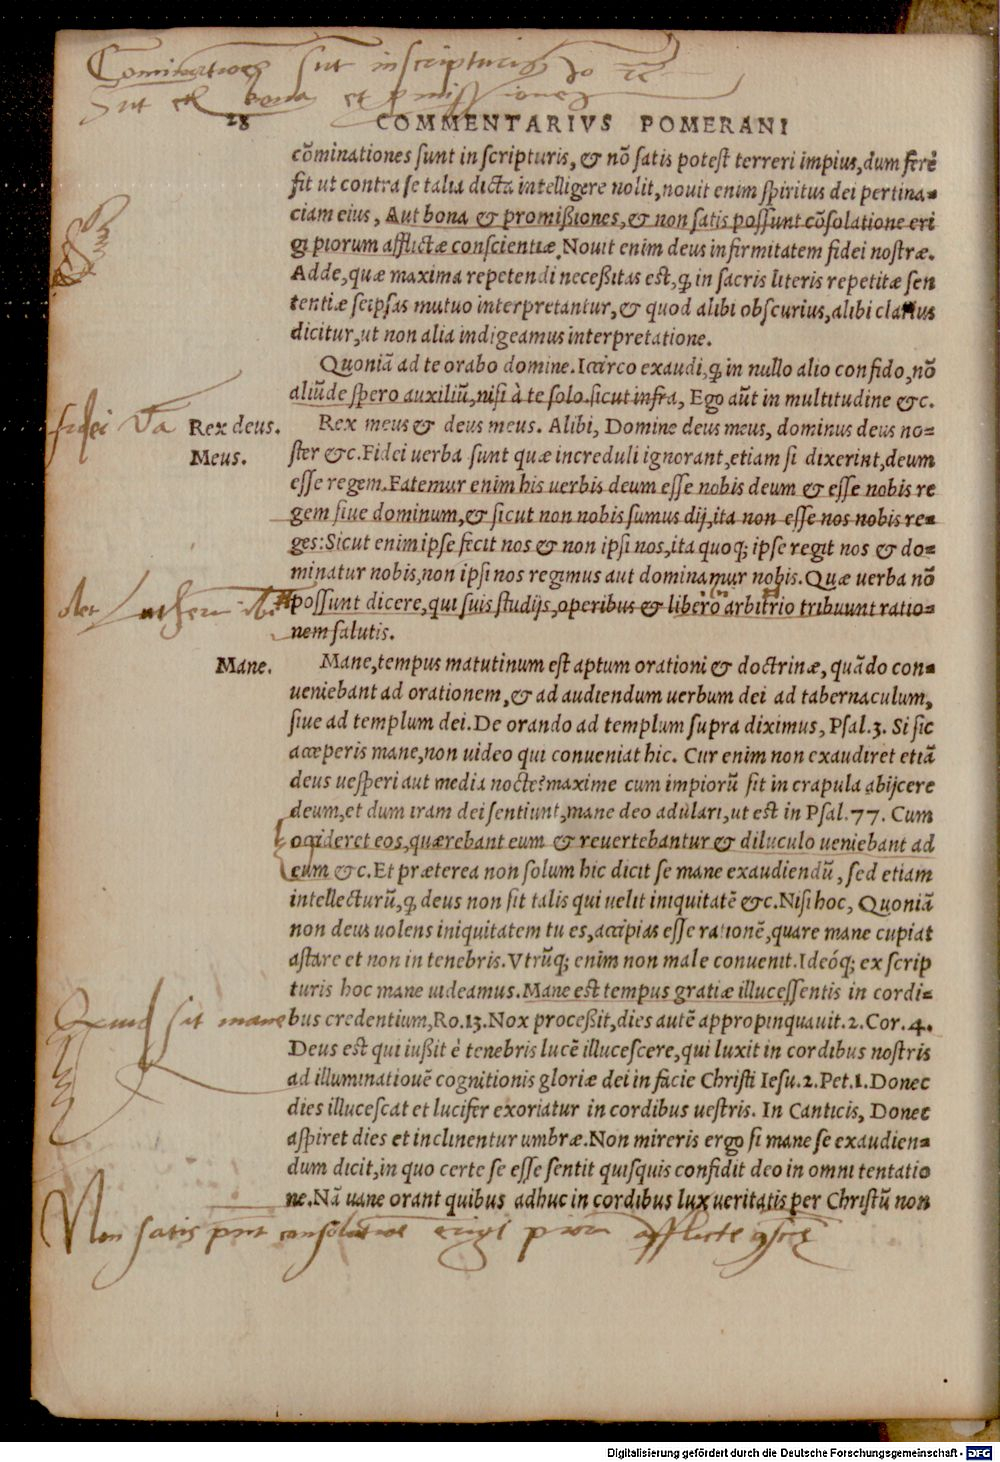 Cominationes sut in scripturis
Sut et bona et promissiones
28 COMMENTARIVS POMERANI
cõminationes sunt in scripturis, & nõ satis potest terreri impius, dum ferè
fit ut contra se talia dicta intelligere nolit, nouit enim spiritus dei pertina-
ciam eius, Aut bona & promißiones, & non satis possunt cõsolatione eri
gi piorum afflictæ conscientiæ. Nouit enim deus infirmitatem fidei nostræ.
Adde, quæ maxima repetendi neceßitas est, ꝙ in sacris literis repetitæ sen
tentiæ seipsas mutuo interpretantur, & quod alibi obscurius, alibi clarius
dicitur, ut non alia indigeamus interpretatione.
Quoniã ad te orabo domine. Iccirco exaudi, ꝙ in nullo alio confido, nõ
aliũde spero auxiliũ, nisi à te solo. sicut infra, Ego aũt in multitudine &c.
fidei Va
Rex deus. Rex meus & deus meus. Alibi, Domine deus meus, dominus deus no-
Meus. ster &c. Fidei uerba sunt quæ increduli ignorant, etiam si dixerint, deum
esse regem. Fatemur enim his uerbis deum esse nobis deum & esse nobis re
gem siue dominum, & sicut non nobis sumus dij, ita non esse nos nobis re-
ges: Sicut enim ipse fecit nos & non ipsi nos, ita quoq; ipse regit nos & do-
minatur nobis, non ipsi nos regimus aut dominamur nobis. Quæ uerba nõ
possunt dicere, qui suis studijs, operibus & libero arbitrio tribuunt ratio-
nem salutis.
Mane. Mane, tempus matutinum est aptum orationi & doctrinæ, quãdo con-
ueniebant ad orationem, & ad audiendum uerbum dei ad tabernaculum,
siue ad templum dei. De orando ad templum supra diximus, Psal. 3. Si sic
acceperis mane, non uideo qui conueniat hic. Cur enim non exaudiret etiã
deus uesperi aut media nocte? maxime cum impiorũ sit in crapula abijcere
deum, et dum iram dei sentiunt, mane deo adulari, ut est in Psal. 77. Cum
occideret eos, quærebant eum & reuertebantur & diluculo ueniebant ad
eum &c. Et præterea non solum hic dicit se mane exaudiendũ, sed etiam
intellecturũ, ꝙ deus non sit talis qui uelit iniquitatẽ &c. Nisi hoc, Quoniã
non deus uolens iniquitatem tu es, accipias esse rationẽ, quare mane cupiat
astare et non in tenebris. Vtrũq; enim non male conuenit. Ideóq; ex scrip
turis hoc mane uideamus. Mane est tempus gratiæ illucessentis in cordi-
Quid sit mane
bus credentium, Ro. 13. Nox proceßit, dies autẽ appropinquauit. 2. Cor. 4.
Deus est qui iußit è tenebris lucẽ illucescere, qui luxit in cordibus nostris
ad illuminatiouẽ cognitionis gloriæ dei in facie Christi Iesu. 2. Pet. 1. Donec
dies illucescat et lucifer exoriatur in cordibus uestris. In Canticis, Donec
aspiret dies et inclinentur umbræ. Non mireris ergo si mane se exaudien-
dum dicit, in quo certe se esse sentit quisquis confidit deo in omni tentatio
ne. Nã uane orant quibus adhuc in cordibus lux ueritatis per Christũ non
Non satis pnt consolatione erigi piorum afflicte
Digitalisierung gefördert durch die Deutsche Forschungsgemeinschaft - DFG